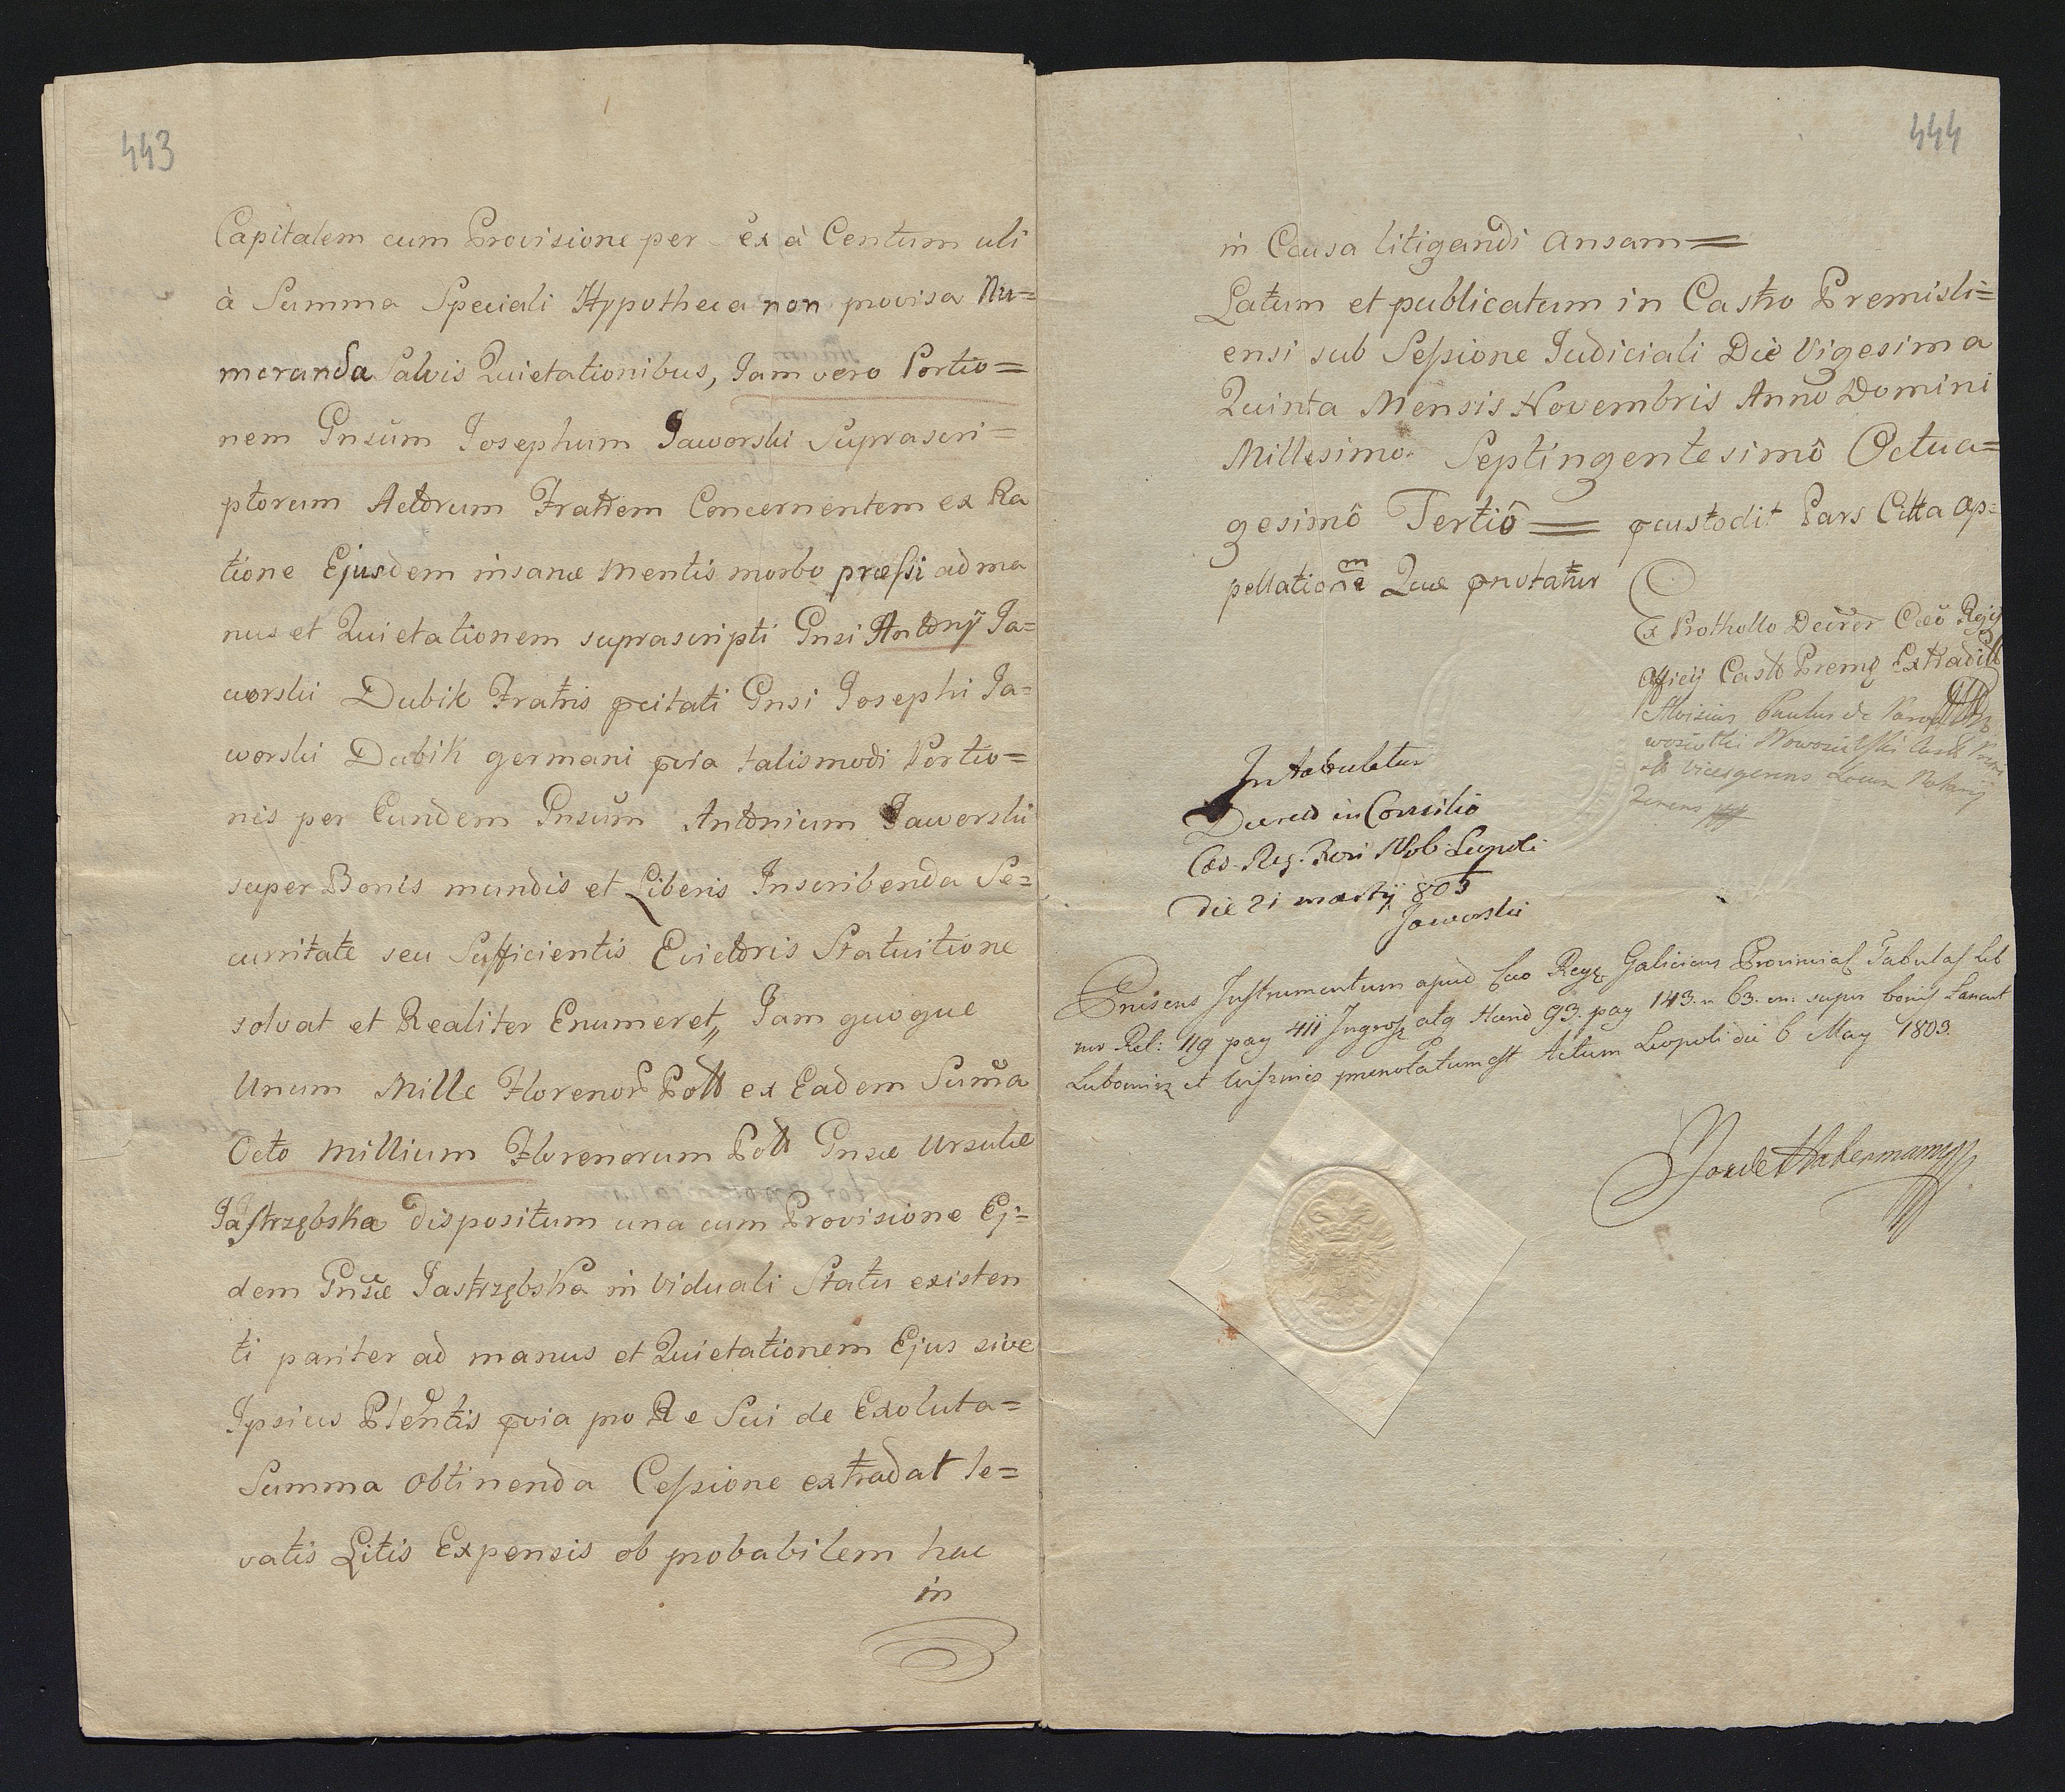 443
Capitalem cum Provisione per ex à Centum uli
à Summa Speciali Hypotheca non provisa Nu=
meranda Salvis Quietationibus, Jam vero Portio=
nem Gnsum Josephum Jaworski Suprascri=
ptorum Actorum Fratrem Concernentem ex Ra
tione Ejusdem insanæ mentis morbo præssi ad ma
nus et Quietationem suprascripti Gnsi Antonÿ Ja=
worski Dubik Fratris pcitati Gnsi Josephi Ja=
worski Dubik germani pvia talismodi Portio=
nis per Eundem Gnsum Antonium Jaworski
super Bonis mundis et Liberis Inscribenda Se=
curitate seu Sufficientis Evictoris Statuitione
solvat et Realiter Enumeret,, Jam quoque
Unum Mille Florenor Poll ex Eadem Suma
Octo Millium Florenorum Poll Gnsæ Ursulæ
Jastrzębska dispositum una cum Provisione Ej=
dem Gnsæ Jastrzębska in Viduali Statu existen
ti pariter ad manus et Quietationem Ejus sive
Ipsius Plentis pvia pro Re Sui de Exoluta=
Summa obtinenda Cessione extradat le=
vatis Litis Expensis ob probabilem hac
in
444
in Causa litigandi ansam=
Latum et publicatum in Castro Premisli=
ensi sub Sessione Judiciali Die Vigesima
Quinta Mensis Novembris Anno Domini
Millesimo Septingentesimô Octua=
gesimô Tertiô= pcustodit Pars Citta ap=
pellationem Quæ pnotatur
Ex Prothollo Decrer Cæo Regÿ
Officÿ Castr Premg Extradit
Aloisius Paulus de
vicesgerens Locum Notarÿ
Tenens
Intabuletur
Decred in Consilio
Cæs. Reg. Fori Nob. Leopoli
die 21 martÿ 803
Jaworski
Prisens Instrumentum apud Cæo Reg Galiciens Provincial Tabulas Lib
nov Rel: 119 pag 411 Ingross atq Hand 93. pag 143. n 63. on: super bonis Lancut
Lubomirz et Wiszmic prænotatum est Actum Leopoli die 6 May 1803.